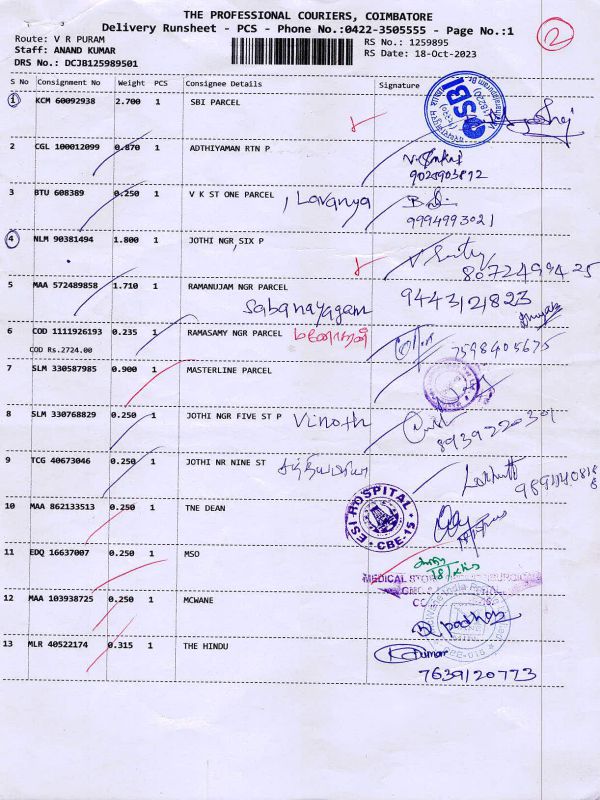 THE PROFESSIONAL COURIERS, COIMBATORE
Delivery Runsheet - PCS - Phone No.:0422-3505555 - Page No.:1
2
Route: V R PURAM
RS No.: 1259895
Staff: ANAND KUMAR
RS Date: 18-Oct-2023
DRS No.: DCJB125989501
S No Consignment No Weight PCS Consignee Details Signature
1 KCM 60092938 2.700 1 SBI PARCEL
SBI
2 CGL 100012099 0.870 1 ADTHIYAMAN RTN P
9028903812
3 BTU 608389 0.250 1 V K ST ONE PARCEL , Lavanya
9994993021
4 NLM 90381494 1.800 1 JOTHI NGR SIX P
8072499425
5 MAA 572489858 1.710 1 RAMANUJAM NGR PARCEL
Sabanayagam 9443121823
6 COD 1111926193 0.235 1 RAMASAMY NGR PARCEL
COD Rs.2724.00
7598405675
7 SLM 330587985 0.900 1 MASTERLINE PARCEL
8 SLM 330768829 0.250 1 JOTHI NGR FIVE ST P Vinoth
8939220301
9 TCG 40673046 0.250 1 JOTHI NR NINE ST
10 MAA 862133513 0.250 1 TNE DEAN
ESI HOSPITAL
CBE-15
11 EDQ 16637007 0.250 1 MSO
MEDICAL
12 MAA 103938725 0.250 1 MCWANE
13 MLR 40522174 0.315 1 THE HINDU
Kumar
7639120773